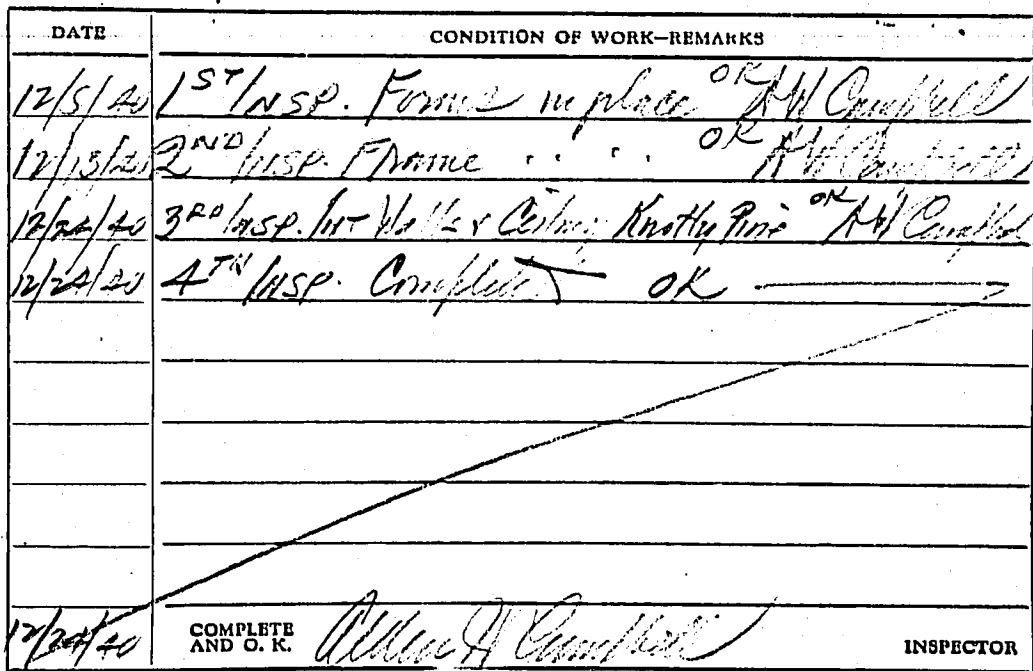 DATE CONDITION OF WORK—REMARKS
12/5/40 1ST INSP. Forms in place OK AW Campbell
12/13/40 2ND INSP. Frame " " OK AW Campbell
12/24/40 3RD INSP. INT Walls & Ceiling Knotty Pine OK AW Campbell
12/24/40 4TH INSP. Complete OK
12/24/40 COMPLETE AND O. K. Campbell INSPECTOR